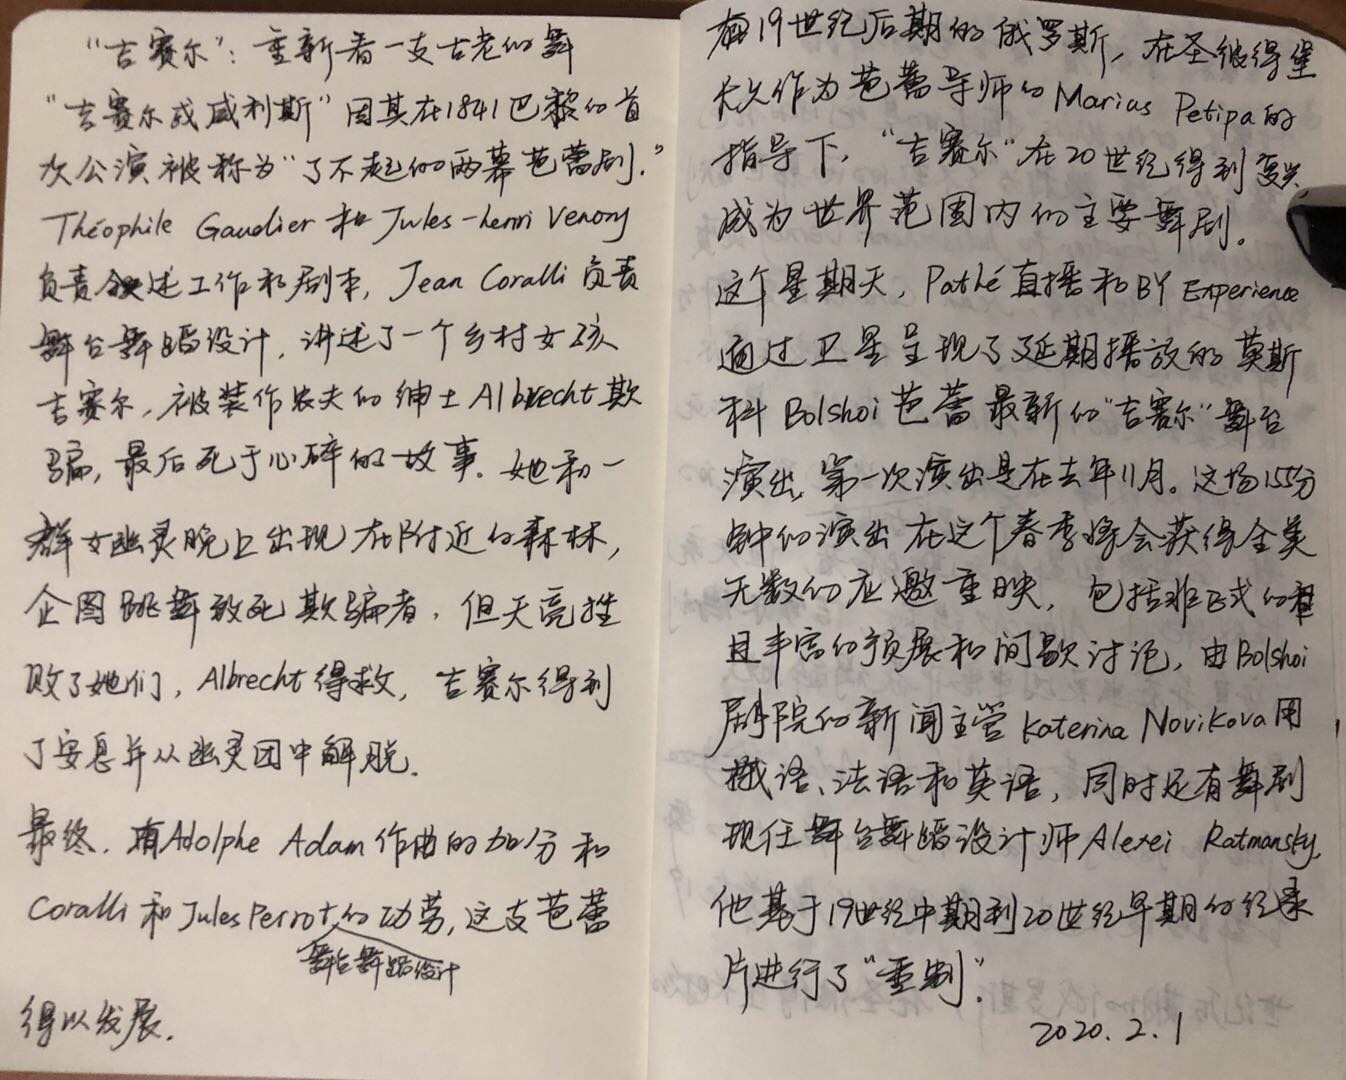 “吉赛尔”：重新看一支古老的舞
“吉赛尔或威利斯”因其在1841巴黎的首
次公演被称为“了不起的两幕芭蕾剧.”
Théophile Gaudier 和 Jules-henri Venony
负责叙述工作和剧本, Jean Coralli 负责
舞台舞蹈设计, 讲述了一个乡村女孩
吉赛尔, 被装作农夫的绅士Albrecht欺
骗, 最后死于心碎的故事. 她和一
群女幽灵晚上出现在附近的森林,
企图跳舞致死欺骗者, 但天亮挫
败了她们, Albrecht得救, 吉赛尔得到
了安息并从幽灵团中解脱.
最终, 有Adolphe Adam作曲的加分和
Coralli 和 Jules Perrot的功劳,这支芭蕾
舞台舞蹈设计
得以发展.
19世纪后期的俄罗斯, 在圣彼得堡
长久作为芭蕾导师的Marius Petipa的
指导下, “吉赛尔”在20世纪得到复兴,
成为世界范围内的主要舞剧。
这个星期天, Pathé直播和BY Experience
通过卫星呈现了延期播放的莫斯
科Bolshoi芭蕾最新的“吉赛尔”舞台
演出, 第一次演出是在去年11月。这场155分
钟的演出在这个春季将会获得全美
无数的应邀重映, 包括非正式的
且丰富的预展和间歇讨论, 由Bolshoi
剧院的新闻主管Katerina Novikova用
俄语、法语和英语, 同时还有舞剧
现任舞台舞蹈设计师Alexei Ratmansky,
他基于19世纪中期到20世纪早期的纪录
片进行了“重制”.
2020.2.1